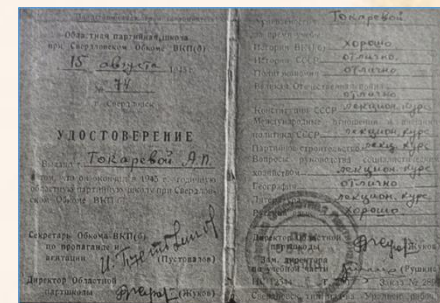 Областная партийная школа
при Свердловском Обкоме ВКП(б)
15 августа
№ 74
г. Свердловск
УДОСТОВЕРЕНИЕ
Токаревой А.П.
в том, что он окончил в 1945 г.
областную партийную школу при
Обкоме ВКП
Секретарь Обкома ВКП(б)
по пропаганде и
агитации
(Пустовалов)
Директор Областной
партшколы
(Жуков)
Токаревой
История ВКП(б) хорошо
История СССР отлично
отлично
отлично
Конституция СССР лекцион. курс
Международные отношения и
политика СССР лекцион. курс
Партийное строительство лекц. курс
Вопросы руководства социалистическим
хозяйством лекцион. курс
География отлично
лекцион. курс
хорошо
Директор Областной
партшколы
(Жуков)
Зам. директора
по учебной части